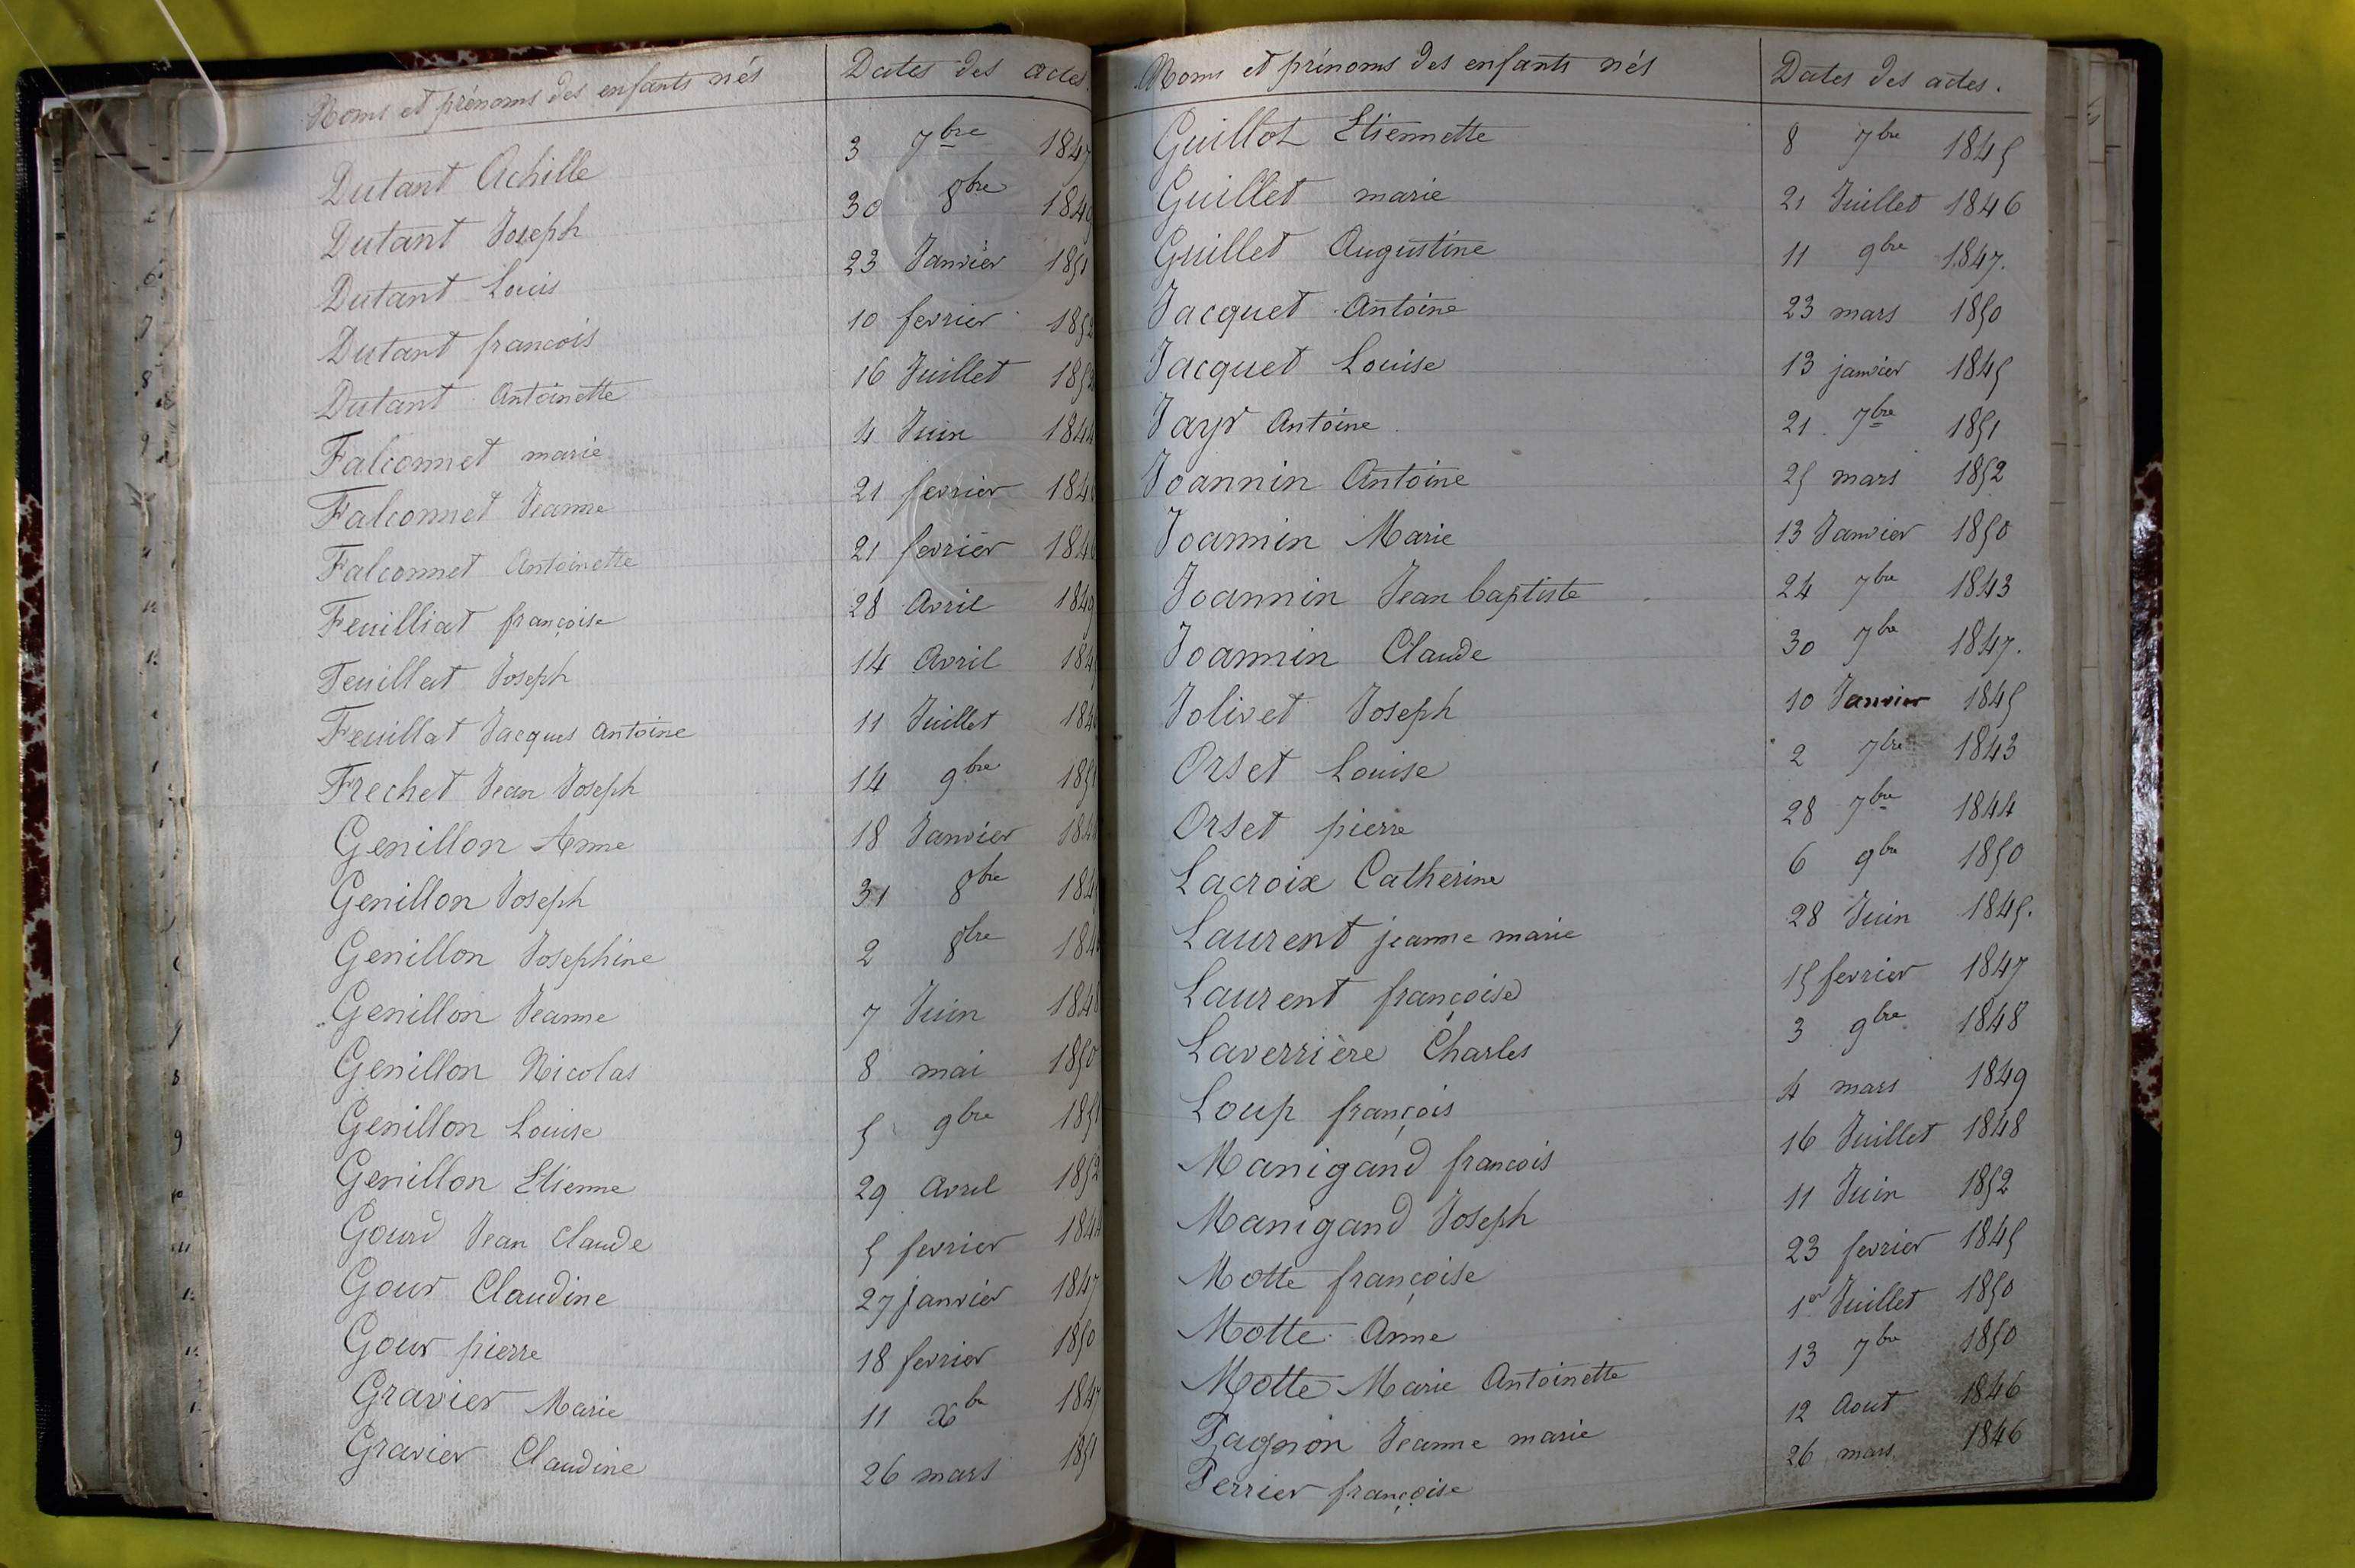 Noms et prénoms des enfants nés Dates des actes.
Dutant Achille 3 7bre 1847
Dutant Joseph 30 8bre 1849
Dutant Louis 23 Janvier 1851
Dutant francois 10 fevrier 1852
Dutant Antoinette 16 Juillet
Falconnet marie 4 Juin 1844
Falconnet Jeanne 21 fevrier
Falconnet Antoinette 21 fevrier
Feuilliat françoise 28 Avril 1849
Feuillat Joseph 14 Avril
Feuillat Jacques Antoine 11 Juillet
Frechet Jean Joseph 14 9bre 1851
Genillon Anne 18 Janvier
Genillon Joseph 31 8bre
Genillon Josephine 2 8bre
Genillon Jeanne 7 Juin 1848
Genillon Nicolas 8 mai 1850
Genillon Louise 5 9bre 1851
Genillon Etienne 29 Avril 1852
Gourd Jean Claude 5 fevrier 1844
Gour Claudine 27 janvier 1847
Gour pierre 18 fevrier 1850
Gravier Marie 11 Xbre 1847
Gravier Claudine 26 mars 1851
Noms et prénoms des enfants nés Dates des actes.
Guillot Etiennette 8 7bre 1845
Guillet marie 21 Juillet 1846
Guillet Augustine 11 9bre 1847.
Jacquet Antoine 23 mars 1850
Jacquet Louise 13 janvier 1845
Jayr Antoine 21 7bre 1851
Joannin Antoine 25 mars 1852
Joannin Marie 13 Janvier 1850
Joannin Jean baptiste 24 7bre 1843
Joannin Claude 30 7bre 1847.
Jolivet Joseph 10 Janvier 1845
Orset Louise 2 7bre 1843
Orset pierre 28 7bre 1844
Lacroix Catherine 6 9bre 1850
Laurent jeanne marie 28 Juin 1845.
Laurent françoise 15 fevrier 1847
Laverrière Charles 3 9bre 1848
Loup françois 4 mars 1849
Manigand francois 16 Juillet 1848
Manigand Joseph 11 Juin 1852
Motte françoise 23 fevrier 1845
Motte Anne 1er Juillet 1850
Motte Marie Antoinette 13 7bre 1850
Pagnon Jeanne marie 12 Aout 1846
Perrier françoise 26 mars 1846